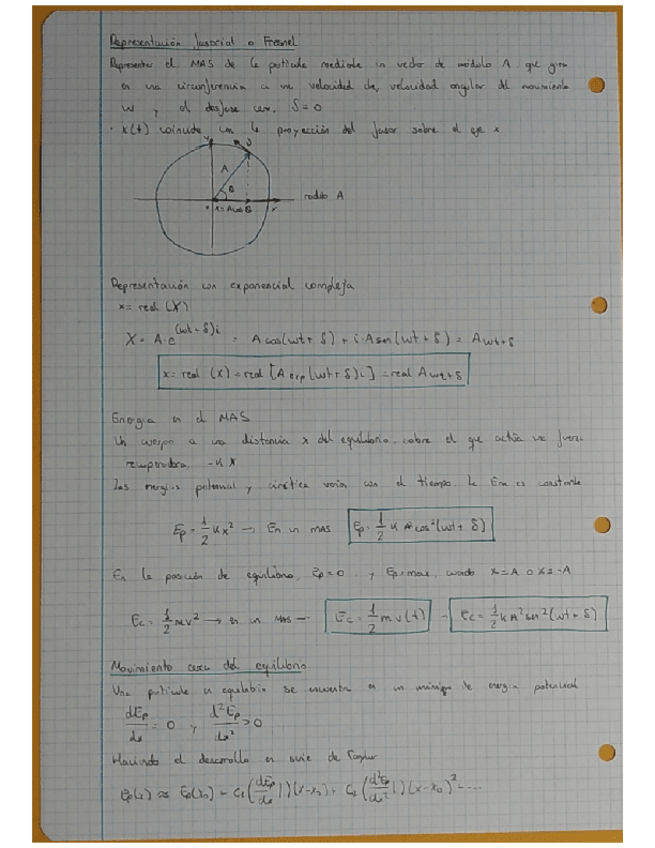 Representación fasorial o Fresnel
Representar el MAS de la partícula mediante un vector de módulo A que gira
en una circunferencia a una velocidad de, velocidad angular del movimiento
w y el desfase cero. δ=0
· x(t) coincide con la proyección del fasor sobre el eje x
A
θ
x=Acosθ
radio A
Representación con exponencial compleja
x= real (X)
X = A·e^(wt+δ)i = A cos(wt+δ) + i·A sen(wt+δ) = A wt+δ
x = real (x) = real [A exp(wt+δ)i] = real A wt+δ
Energia en el MAS
Un cuerpo a una distancia x del equilibrio, sobre el que actúa una fuerza
recuperadora, -k x
Las energias potencial y cinética varian con el tiempo. la Em es constante
Ep = 1/2 kx² → En un MAS Ep = 1/2 k A² cos²(wt+δ)
En la posición de equilibrio, Ep=0 y Ep=max, cuando x=A o x=-A
Ec = 1/2 mv² → en un MAS — Ec = 1/2 m v(t) - Ec = 1/2 k A² sen²(wt+δ)
Movimiento cerca del equilibrio
Una partícula en equilibrio se encuentra en un mínimo de energia potencial
dEp/dx = 0 y d²Ep/dx² > 0
Haciendo el desarrollo en serie de Taylor
Ep(x) ≈ Ep(x₀) + C₁ (dEp/dx |)(x-x₀) + C₂ (d²Ep/dx² |)(x-x₀)² + ....